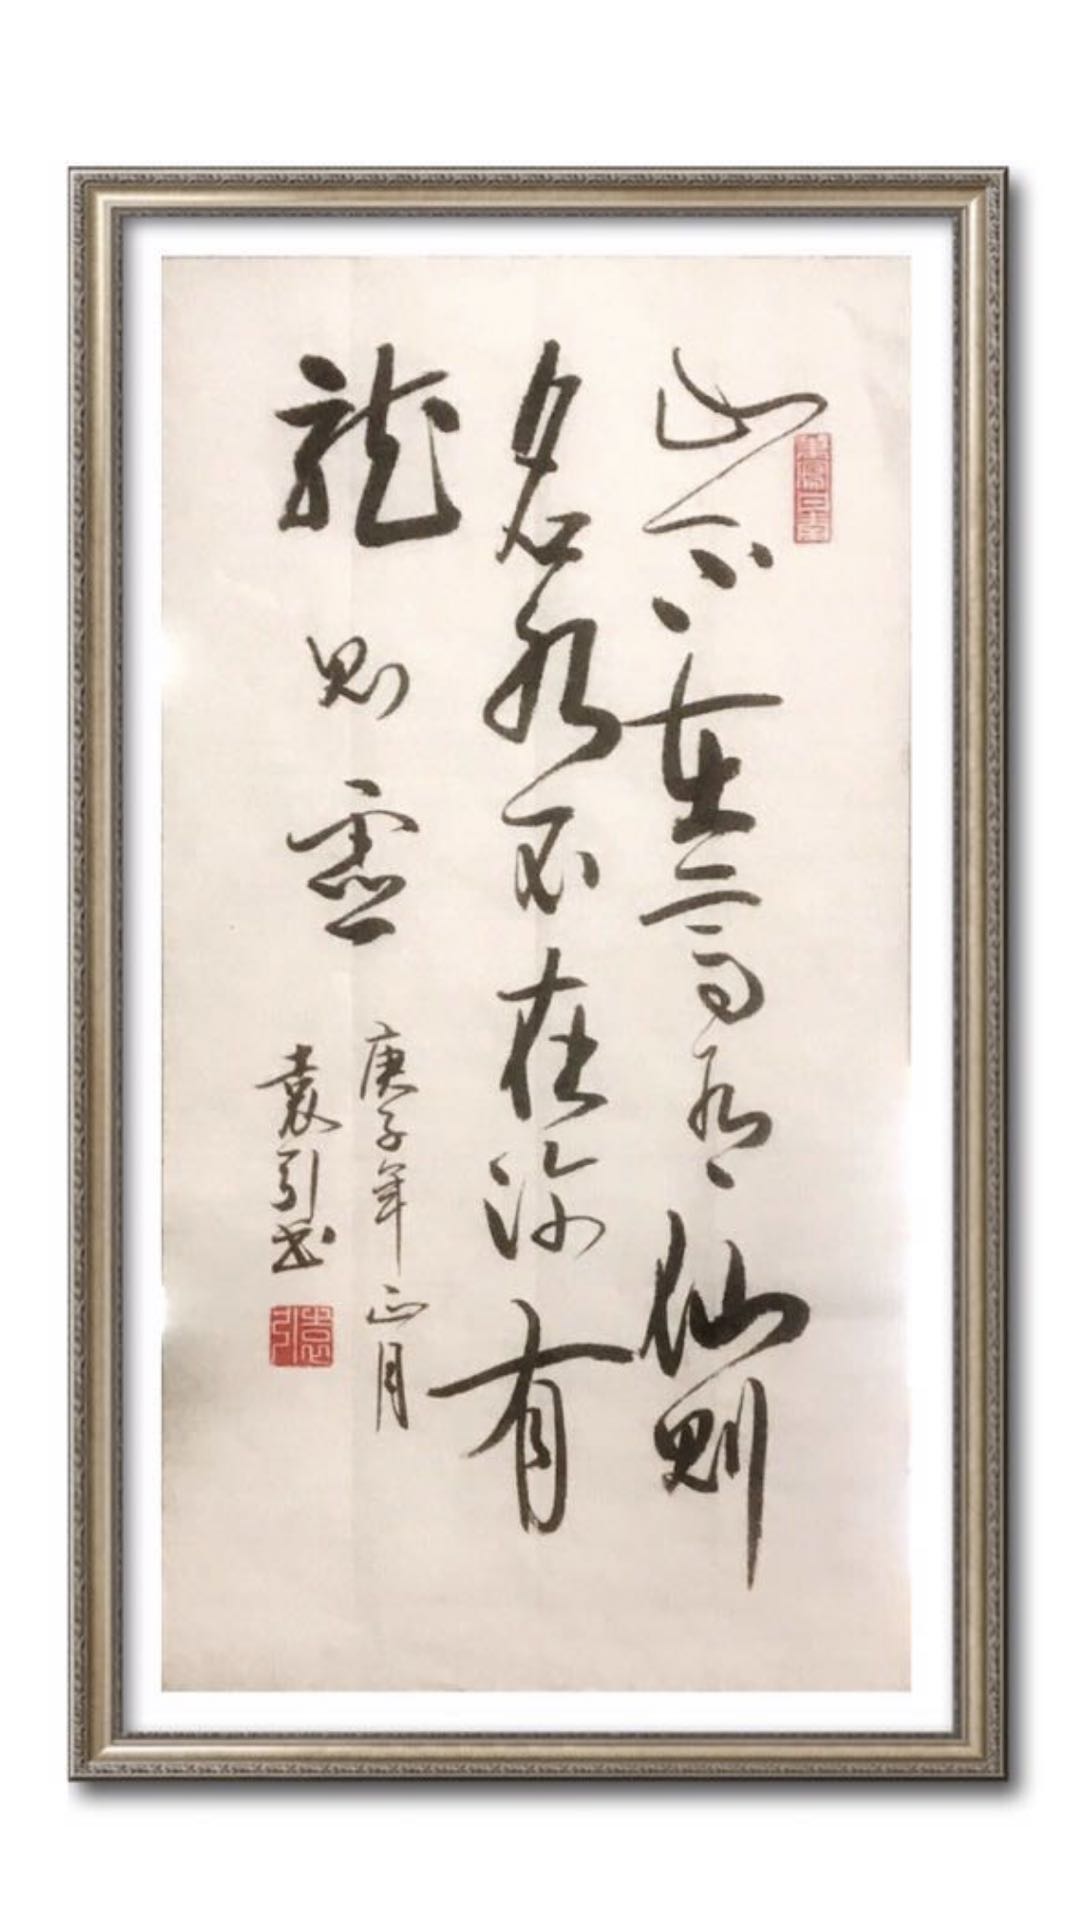 山不在高有仙則
名水不在深有
龍則靈
庚子年正月
袁引書
袁引